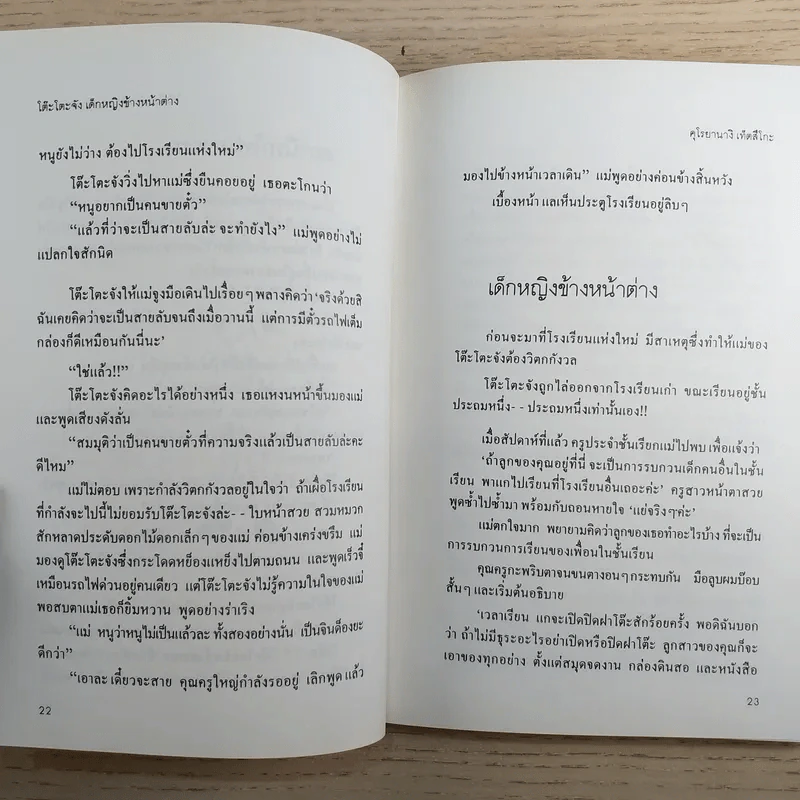 โต๊ะโตะจัง เด็กหญิงข้างหน้าต่าง
หนูยังไม่ว่าง ต้องไปโรงเรียนแห่งใหม่”
โต๊ะโตะจังวิ่งไปหาแม่ซึ่งยืนคอยอยู่ เธอตะโกนว่า
“หนูอยากเป็นคนขายตั๋ว”
“แล้วที่ว่าจะเป็นสายลับล่ะ จะทำยังไง” แม่พูดอย่างไม่
แปลกใจสักนิด
โต๊ะโตะจังให้แม่จูงมือเดินไปเรื่อยๆ พลางคิดว่า ‘จริงด้วยสิ
ฉันเคยคิดว่าจะเป็นสายลับจนถึงเมื่อวานนี้ แต่การมีตั๋วรถไฟเต็ม
กล่องก็ดีเหมือนกันนี่นะ’
“ใช่แล้ว!!”
โต๊ะโตะจังคิดอะไรได้อย่างหนึ่ง เธอแหงนหน้าขึ้นมองแม่
และพูดเสียงดังลั่น
“สมมุติว่าเป็นคนขายตั๋วที่ความจริงแล้วเป็นสายลับล่ะคะ
ดีไหม”
แม่ไม่ตอบ เพราะกำลังวิตกกังวลอยู่ในใจว่า ถ้าเผื่อโรงเรียน
ที่กำลังจะไปนี้ไม่ยอมรับโต๊ะโตะจังล่ะ- - ใบหน้าสวย สวมหมวก
สักหลาดประดับดอกไม้ดอกเล็กๆ ของแม่ ค่อนข้างเคร่งขรึม แม่
มองดูโต๊ะโตะจังซึ่งกระโดดหย็องแหย็งไปตามถนน และพูดเร็วจี๋
เหมือนรถไฟด่วนอยู่คนเดียว แต่โต๊ะโตะจังไม่รู้ความในใจของแม่
พอสบตาแม่เธอก็ยิ้มหวาน พูดอย่างร่าเริง
“แม่ หนูว่าหนูไม่เป็นแล้วละ ทั้งสองอย่างนั่น เป็นจินด็องยะ
ดีกว่า”
“เอาละ เดี๋ยวจะสาย คุณครูใหญ่กำลังรออยู่ เลิกพูด แล้ว
22
คุโรยานางิ เท็ตสึโกะ
มองไปข้างหน้าเวลาเดิน” แม่พูดอย่างค่อนข้างสิ้นหวัง
เบื้องหน้า แลเห็นประตูโรงเรียนอยู่ลิบๆ
เด็กหญิงข้างหน้าต่าง
ก่อนจะมาที่โรงเรียนแห่งใหม่ มีสาเหตุซึ่งทำให้แม่ของ
โต๊ะโตะจังต้องวิตกกังวล
โต๊ะโตะจังถูกไล่ออกจากโรงเรียนเก่า ขณะเรียนอยู่ชั้น
ประถมหนึ่ง- - ประถมหนึ่งเท่านั้นเอง!!
เมื่อสัปดาห์ที่แล้ว ครูประจำชั้นเรียกแม่ไปพบ เพื่อแจ้งว่า
‘ถ้าลูกของคุณอยู่ที่นี่ จะเป็นการรบกวนเด็กคนอื่นในชั้น
เรียน พาแกไปเรียนที่โรงเรียนอื่นเถอะค่ะ’ ครูสาวหน้าตาสวย
พูดซ้ำไปซ้ำมา พร้อมกับถอนหายใจ ‘แย่จริงๆ ค่ะ’
แม่ตกใจมาก พยายามคิดว่าลูกของเธอทำอะไรบ้าง ที่จะเป็น
การรบกวนการเรียนของเพื่อนในชั้นเรียน
คุณครูกะพริบตาจนขนตางอนๆ กระทบกัน มือลูบผมบ๊อบ
สั้นๆ และเริ่มต้นอธิบาย
‘เวลาเรียน แกจะเปิดปิดฝาโต๊ะสักร้อยครั้ง พอดิฉันบอก
ว่า ถ้าไม่มีธุระอะไรอย่าเปิดหรือปิดฝาโต๊ะ ลูกสาวของคุณก็จะ
เอาของทุกอย่าง ตั้งแต่สมุดจดงาน กล่องดินสอ และหนังสือ
23